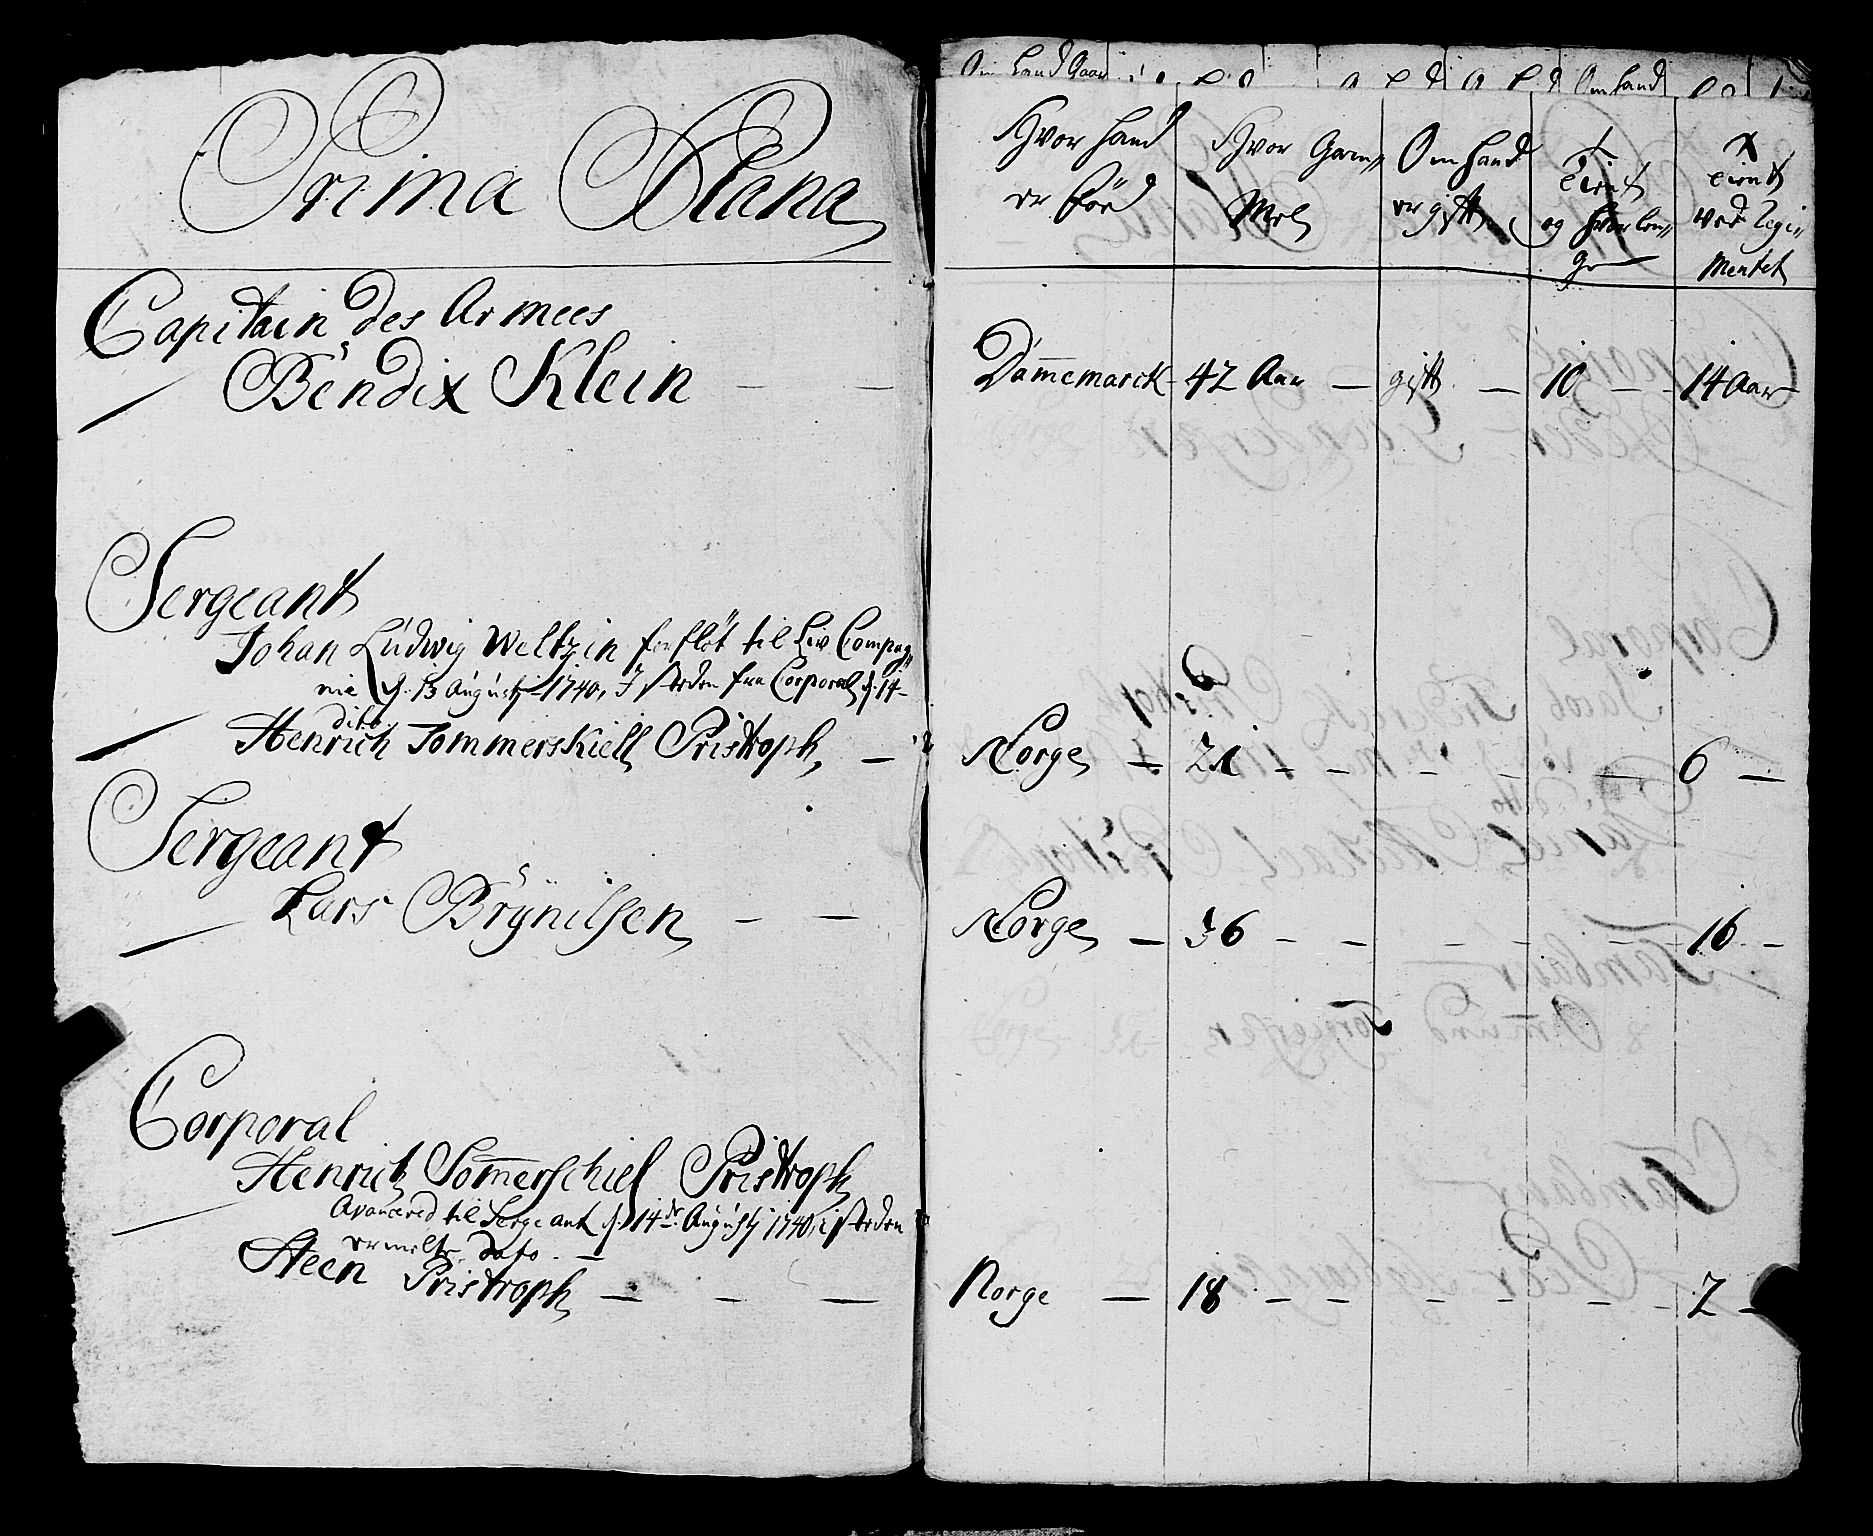 Prima Plana
Capitain des Armees
Bendix Klein — —
Sergeant
Johan Ludwig Weltzin forfløt til Liv Compag„
nie d. 13 Augusti 1740, I steden fra Corporal d. 14
dito
Henrich Sommerskiell Pristroph, —
Sergeant
Lars Brÿnilsen — —
Corporal
Henrich Som̅erschiel Pristroph
Avancered til Sergeant d. 14de Augusti 1740, i steden
ermelte dato. —
Steen Pristroph — — —
Hvor hand er föed
Hvor Gam„ Mel
Om hand er gift
Tient og hvor len„ ge
Tient ved Regi„ mentet
Dan̅emarck 42 Aar — gift — 10 — 14 Aar
Norge — 21 — — — — — — 6 —
Norge — 36 — — — — — — 16 —
Norge — 18 — — — — — — 2 —